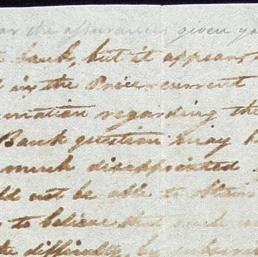 the assurance given yo
bank, but it appears
in the Price current
mation regarding the
Bank question may h
much disappointed
ld not be able to obtain
to believe that much
the difficulty, by